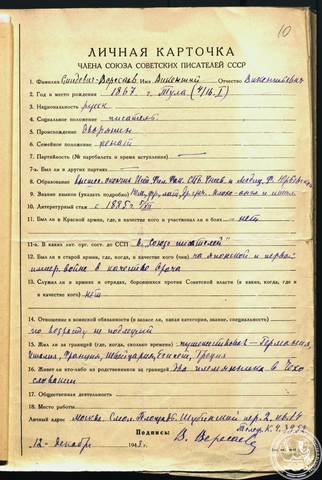 10
ЛИЧНАЯ КАРТОЧКА
ЧЛЕНА СОЮЗА СОВЕТСКИХ ПИСАТЕЛЕЙ СССР
1. Фамилия Смидович-Вересаев Имя Викентий Отчество Викентьевич
2. Год и место рождения 1867 г. Тула (4/16.I)
3. Национальность русск
4. Социальное положение писатель
5. Происхождение дворянин
6. Семейное положение женат
7. Партийность (№ партбилета и время вступления) —
7-а. Был ли в других партиях
8. Образование высшее, окончил Ист. Фил. Фак. СПБ. Унив. и Медиц. Ф. Юрьевск
9. Знание языка (указать подробно) Нем, фр, лат, греч, плохо-англ и итал
10. Литературный стаж с 1885 г.
11. Был ли в Красной армии, где, когда, в качестве кого и участвовал ли в боях — нет
11-а. В каких лит. орг. сост. до ССП в „Союзе писателей"
12. Был ли в старой армии, где, когда, в качестве кого (чин) на японской и первой
импер. войне в качестве врача
13. Служил ли в армиях и отрядах, боровшихся против Советской власти (в каких, когда, где и
в качестве кого) нет
14. Отношение к воинской обязанности (в запасе ли, какая категория, звание, специальность)
по возрасту не подлежит
15. Жил ли за границей (где, когда, сколько времени) путешествовал - Германия,
Италия, Франция, Швейцария, Египет, Греция
16. Живет ли кто-либо из родственников за границей два племянника в Чехо
словакии
17. Общественная деятельность
18. Место работы
Личный адрес Москва Смол. Площадь Шубинский пер. 2, кв. 14
Телеф. К. 4.
Подпись В. Вересаев
12 - декабрь